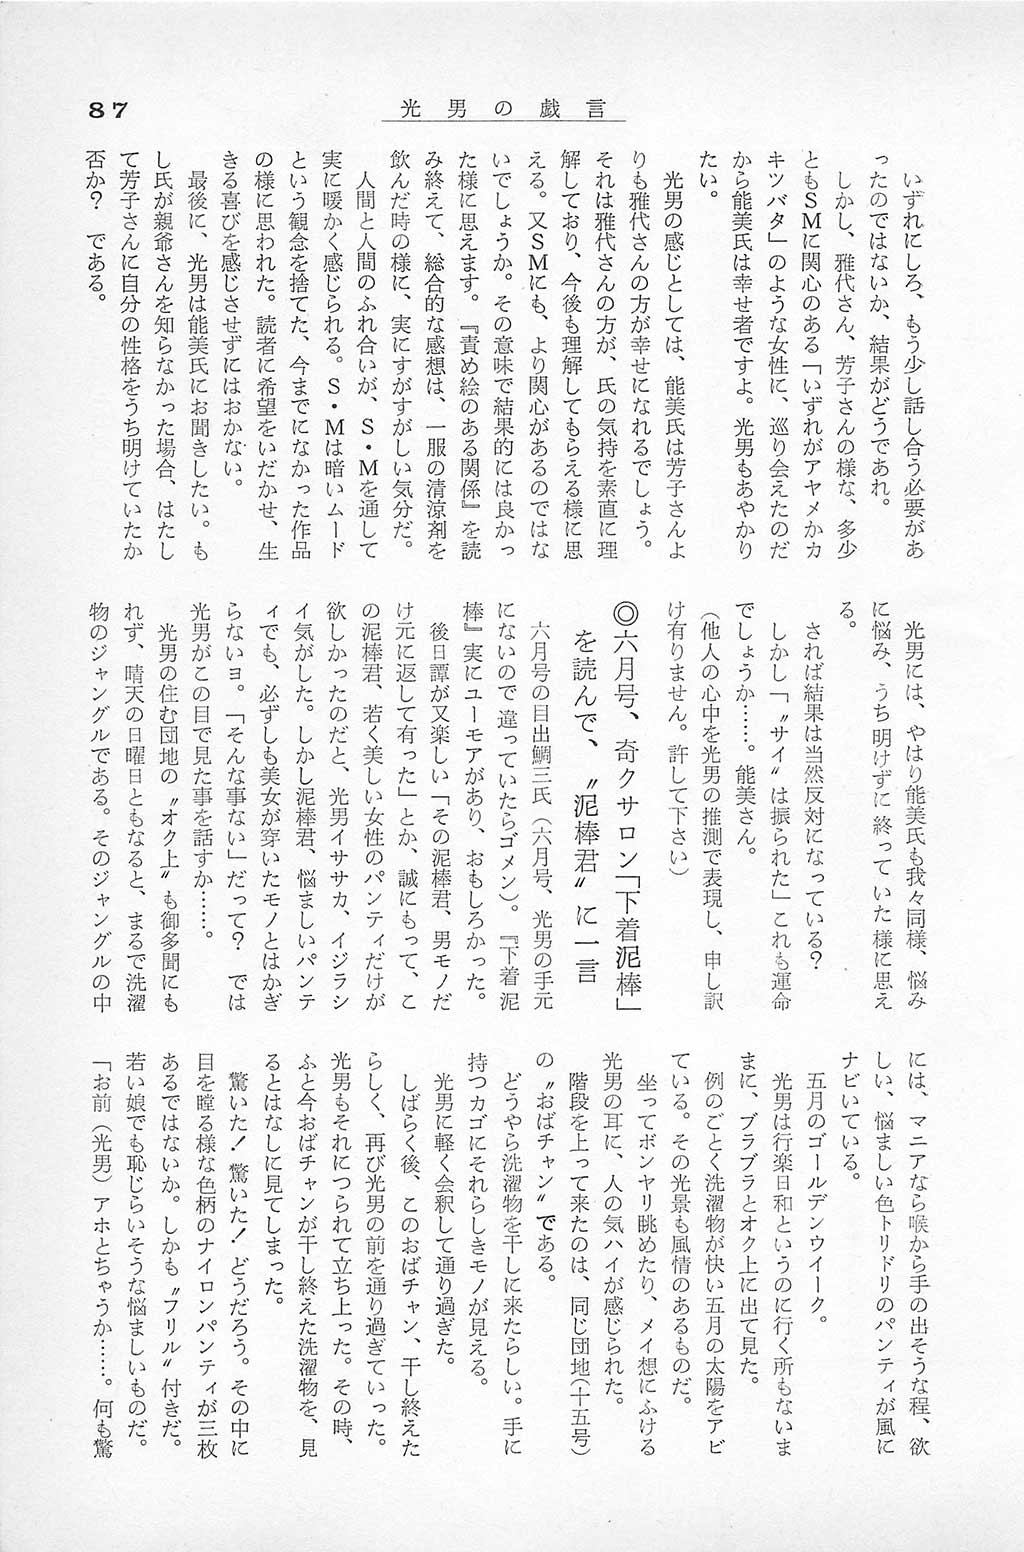 87
光男の戯言
いずれにしろ、もう少し話し合う必要があ
ったのではないか、結果がどうであれ。
しかし、雅代さん、芳子さんの様な、多少
ともSMに関心のある「いずれがアヤメかカ
キツバタ」のような女性に、巡り会えたのだ
から能美氏は幸せ者ですよ。光男もあやかり
たい。
光男の感じとしては、能美氏は芳子さんよ
りも雅代さんの方が幸せになれるでしょう。
それは雅代さんの方が、氏の気持を素直に理
解しており、今後も理解してもらえる様に思
える。又SMにも、より関心があるのではな
いでしょうか。その意味で結果的には良かっ
た様に思えます。『責め絵のある関係』を読
み終えて、総合的な感想は、一服の清涼剤を
飲んだ時の様に、実にすがすがしい気分だ。
人間と人間のふれ合いが、S・Mを通して
実に暖かく感じられる。S・Mは暗いムード
という観念を捨てた、今までになかった作品
の様に思われた。読者に希望をいだかせ、生
きる喜びを感じさせずにはおかない。
最後に、光男は能美氏にお聞きしたい。も
し氏が親爺さんを知らなかった場合、はたし
て芳子さんに自分の性格をうち明けていたか
否か？　である。
光男には、やはり能美氏も我々同様、悩み
に悩み、うち明けずに終っていた様に思え
る。
されば結果は当然反対になっている？
しかし「〝サイ〟は振られた」これも運命
でしょうか……。能美さん。
（他人の心中を光男の推測で表現し、申し訳
け有りません。許して下さい）
◎六月号、奇クサロン「下着泥棒」
を読んで、〝泥棒君〟に一言
六月号の目出鯛三氏（六月号、光男の手元
にないので違っていたらゴメン）。『下着泥
棒』実にユーモアがあり、おもしろかった。
後日譚が又楽しい「その泥棒君、男モノだ
け元に返して有った」とか、誠にもって、こ
の泥棒君、若く美しい女性のパンティだけが
欲しかったのだと、光男イササカ、イジラシ
イ気がした。しかし泥棒君、悩ましいパンテ
ィでも、必ずしも美女が穿いたモノとはかぎ
らないヨ。「そんな事ない」だって？　では
光男がこの目で見た事を話すか……。
光男の住む団地の〝オク上〟も御多聞にも
れず、晴天の日曜日ともなると、まるで洗濯
物のジャングルである。そのジャングルの中
には、マニアなら喉から手の出そうな程、欲
しい、悩ましい色トリドリのパンティが風に
ナビいている。
五月のゴールデンウイーク。
光男は行楽日和というのに行く所もないま
まに、ブラブラとオク上に出て見た。
例のごとく洗濯物が快い五月の太陽をアビ
ている。その光景も風情のあるものだ。
坐ってボンヤリ眺めたり、メイ想にふける
光男の耳に、人の気ハイが感じられた。
階段を上って来たのは、同じ団地（十五号）
の〝おばチャン〟である。
どうやら洗濯物を干しに来たらしい。手に
持つカゴにそれらしきモノが見える。
光男に軽く会釈して通り過ぎた。
しばらく後、このおばチャン、干し終えた
らしく、再び光男の前を通り過ぎていった。
光男もそれにつられて立ち上った。その時、
ふと今おばチャンが干し終えた洗濯物を、見
るとはなしに見てしまった。
驚いた！驚いた！どうだろう。その中に
目を瞠る様な色柄のナイロンパンティが三枚
あるではないか。しかも〝フリル〟付きだ。
若い娘でも恥じらいそうな悩ましいものだ。
「お前（光男）アホとちゃうか……。何も驚